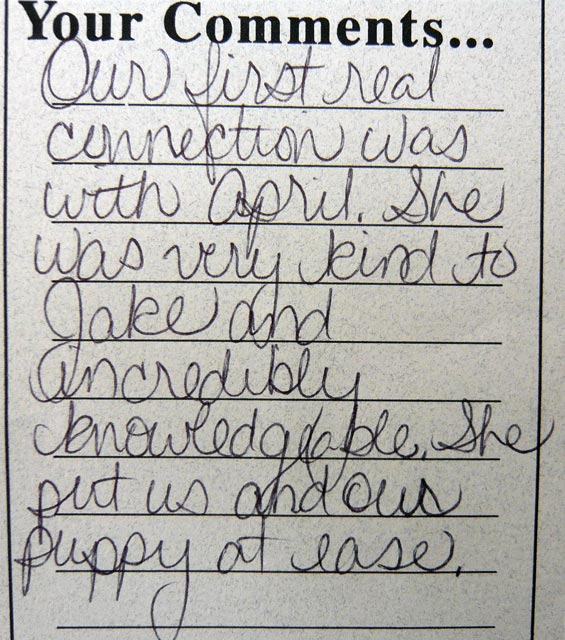 Your Comments...
Our first real
connection was
with April. She
was very kind to
Jake and
incredibly
knowledgeable. She
put us and our
puppy at ease.